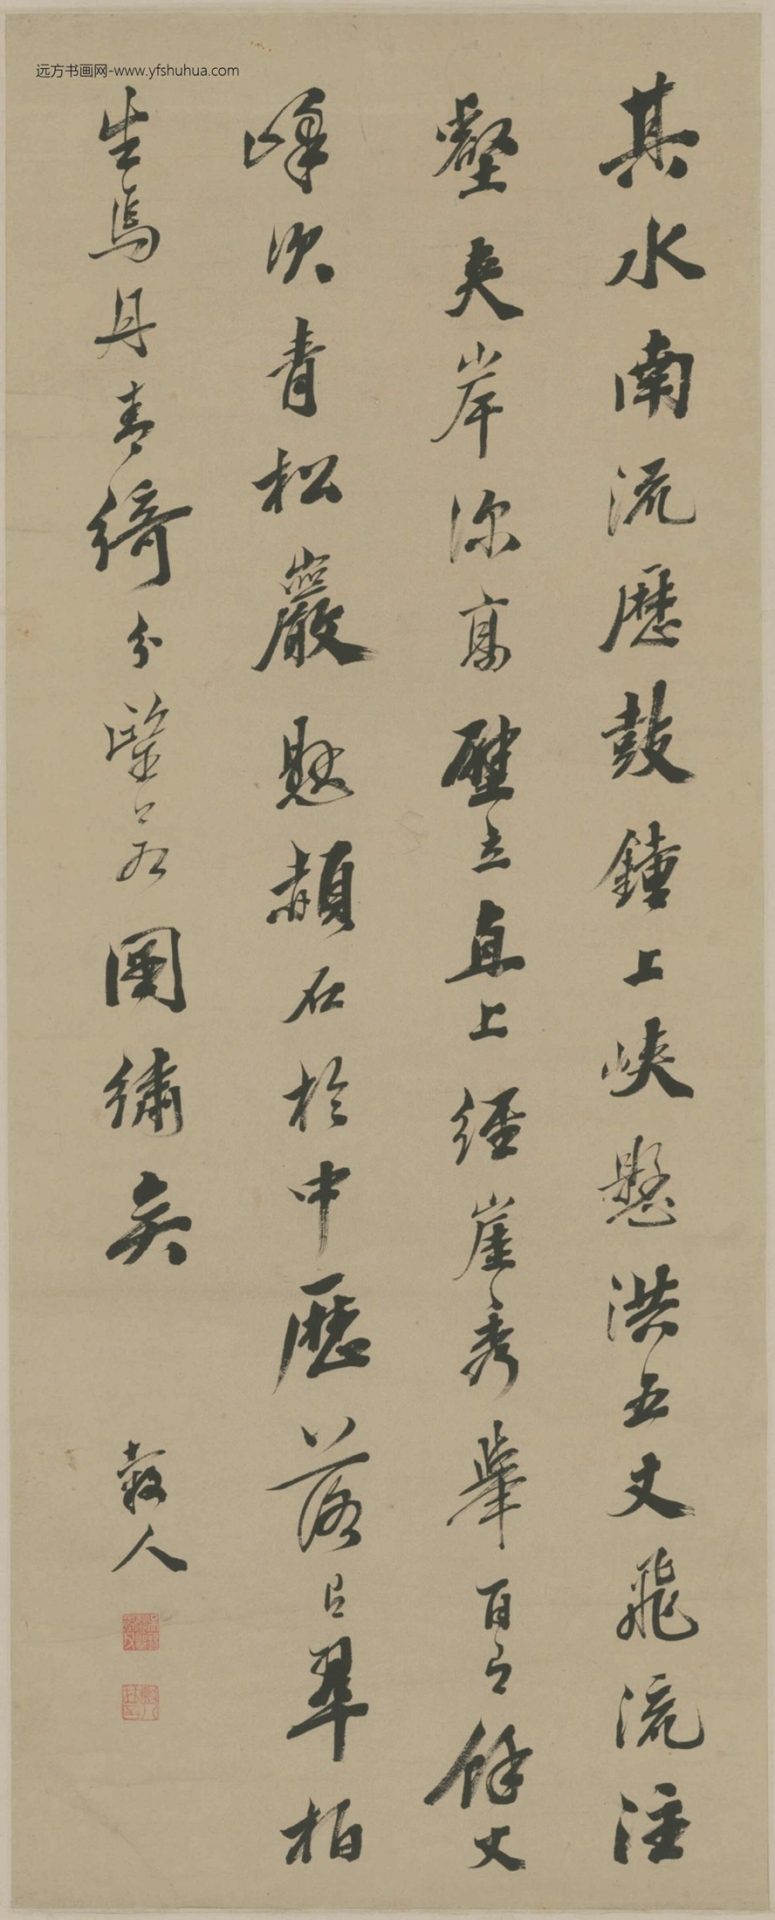 远方书画网-www.yfshuhua.com
其水南流歷鼓鍾上峽懸洪五丈飛流注
壑夾岸深高壁立直上經崖秀舉百有餘丈
峰次青松巖懸赬石於中歷落有翠柏
生焉丹青綺分望若圖繡矣
穀人